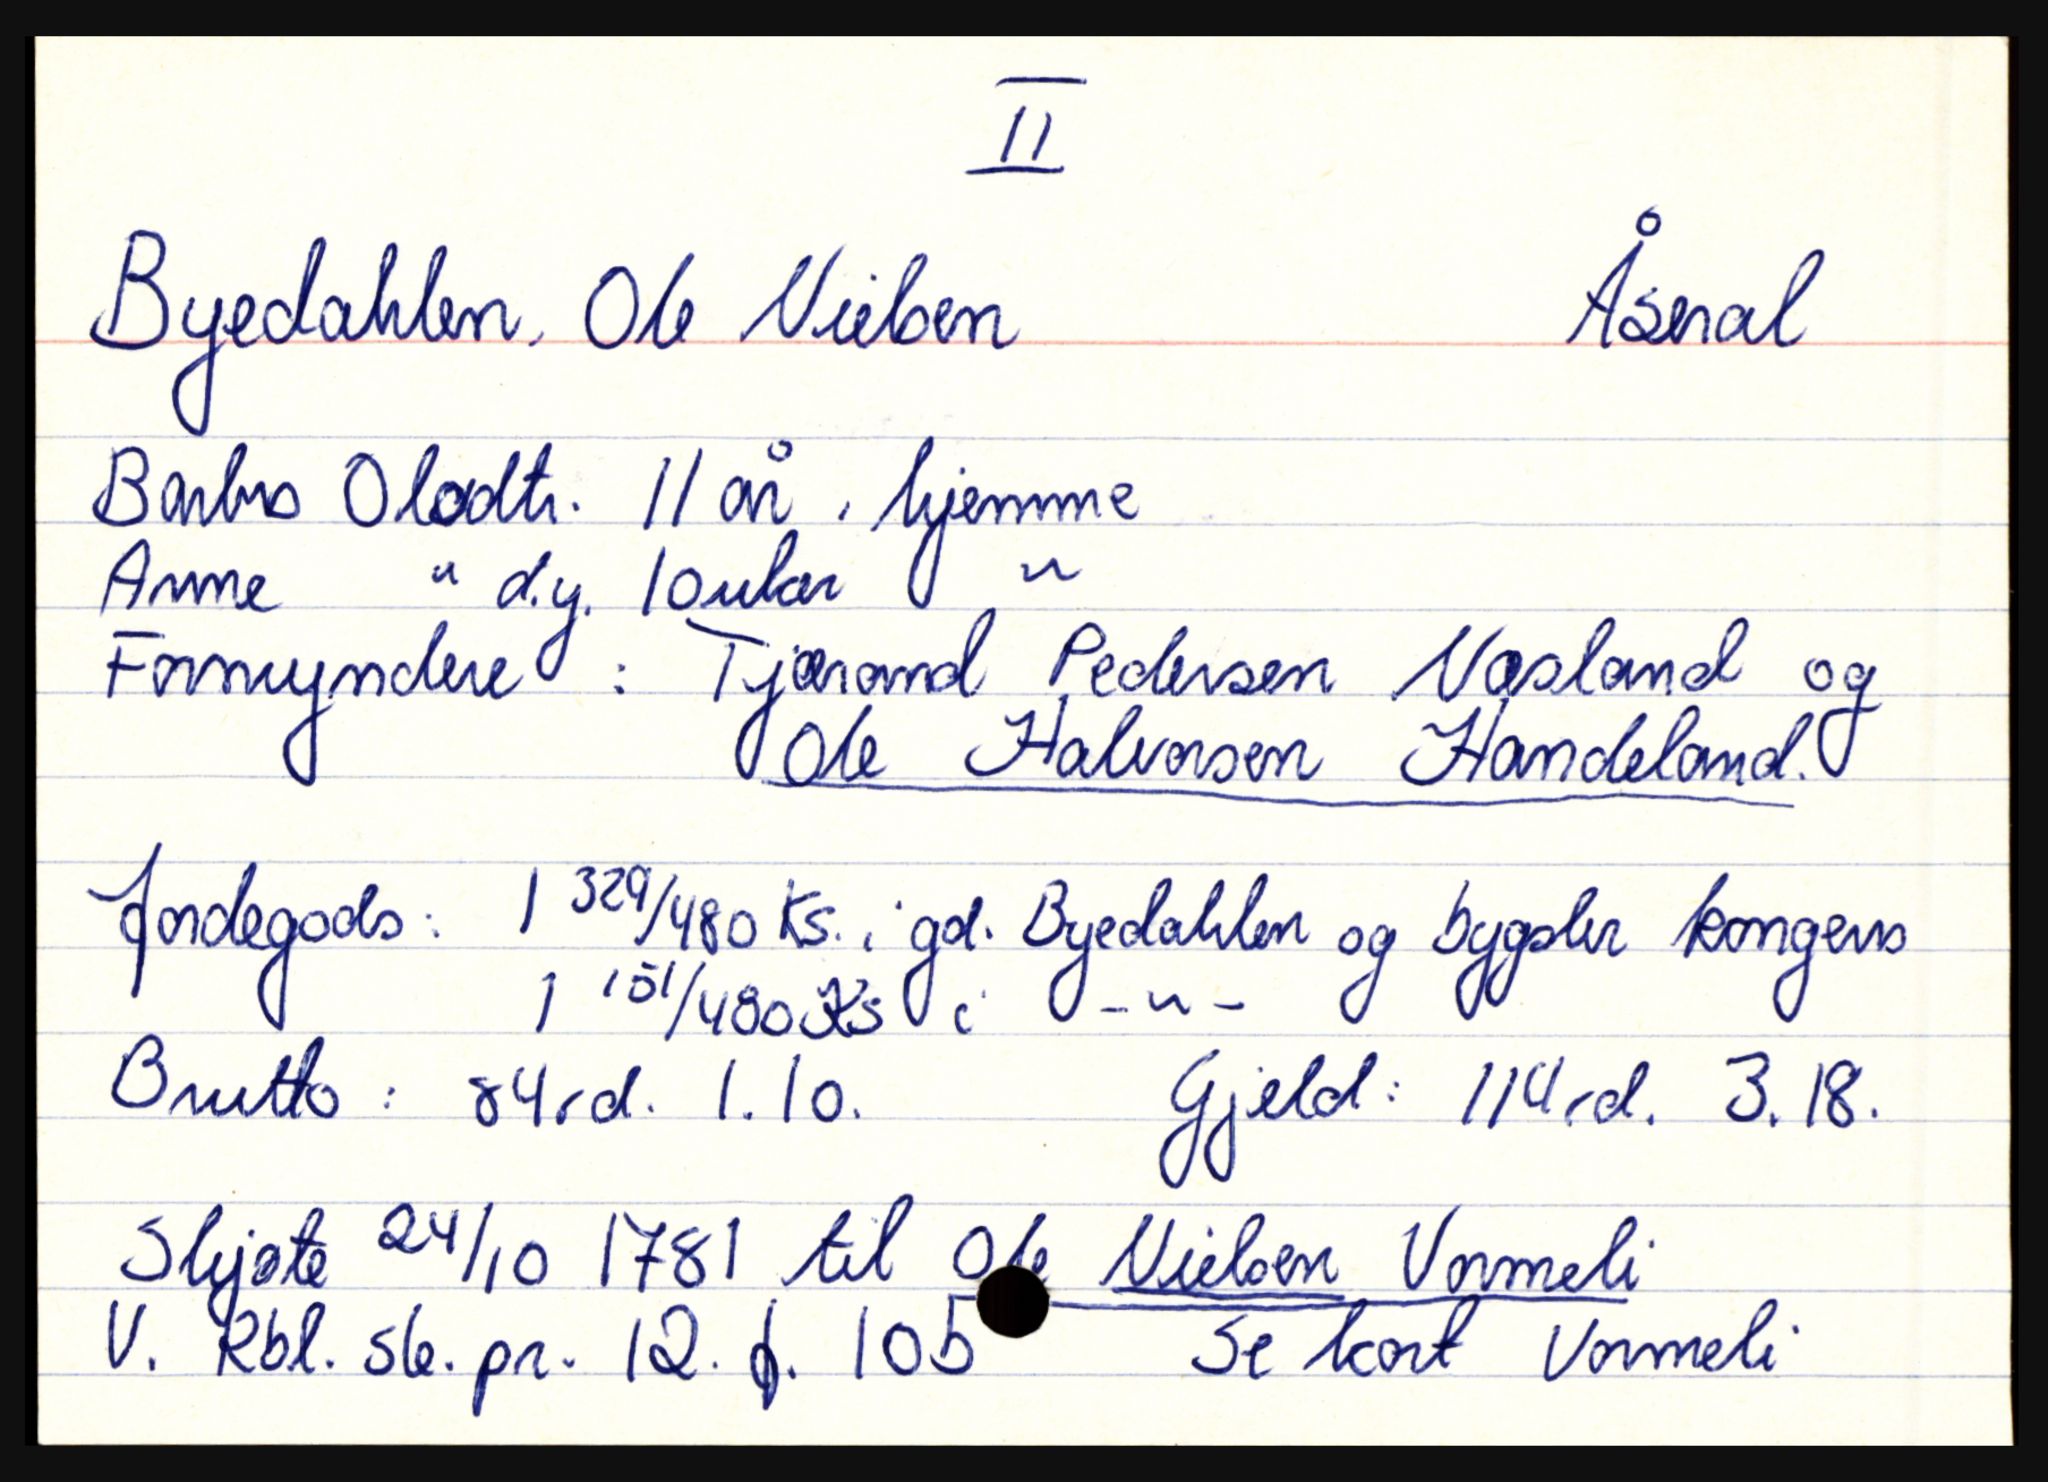 II
Byedahlen, Ole Nielsen Åseral
Barbro Olsdtr. 11 år, hjemme
Anne " d.y. 10 uker "
Formyndere : Tjærand Pedersen Næsland og
Ole Halvorsen Handeland.
Jordegods: 1 329/480 Ks. i gd. Byedahlen og bygsler kongens
1 151/480 Ks i - " -
Brutto : 84 rd. 1. 10. Gjeld: 114 rd. 3. 18.
Skjøte 24/10 1781 til Ole Nielsen Vormeli
V. Rbl. sk. pr. 12. f. 10b Se kort Vormeli